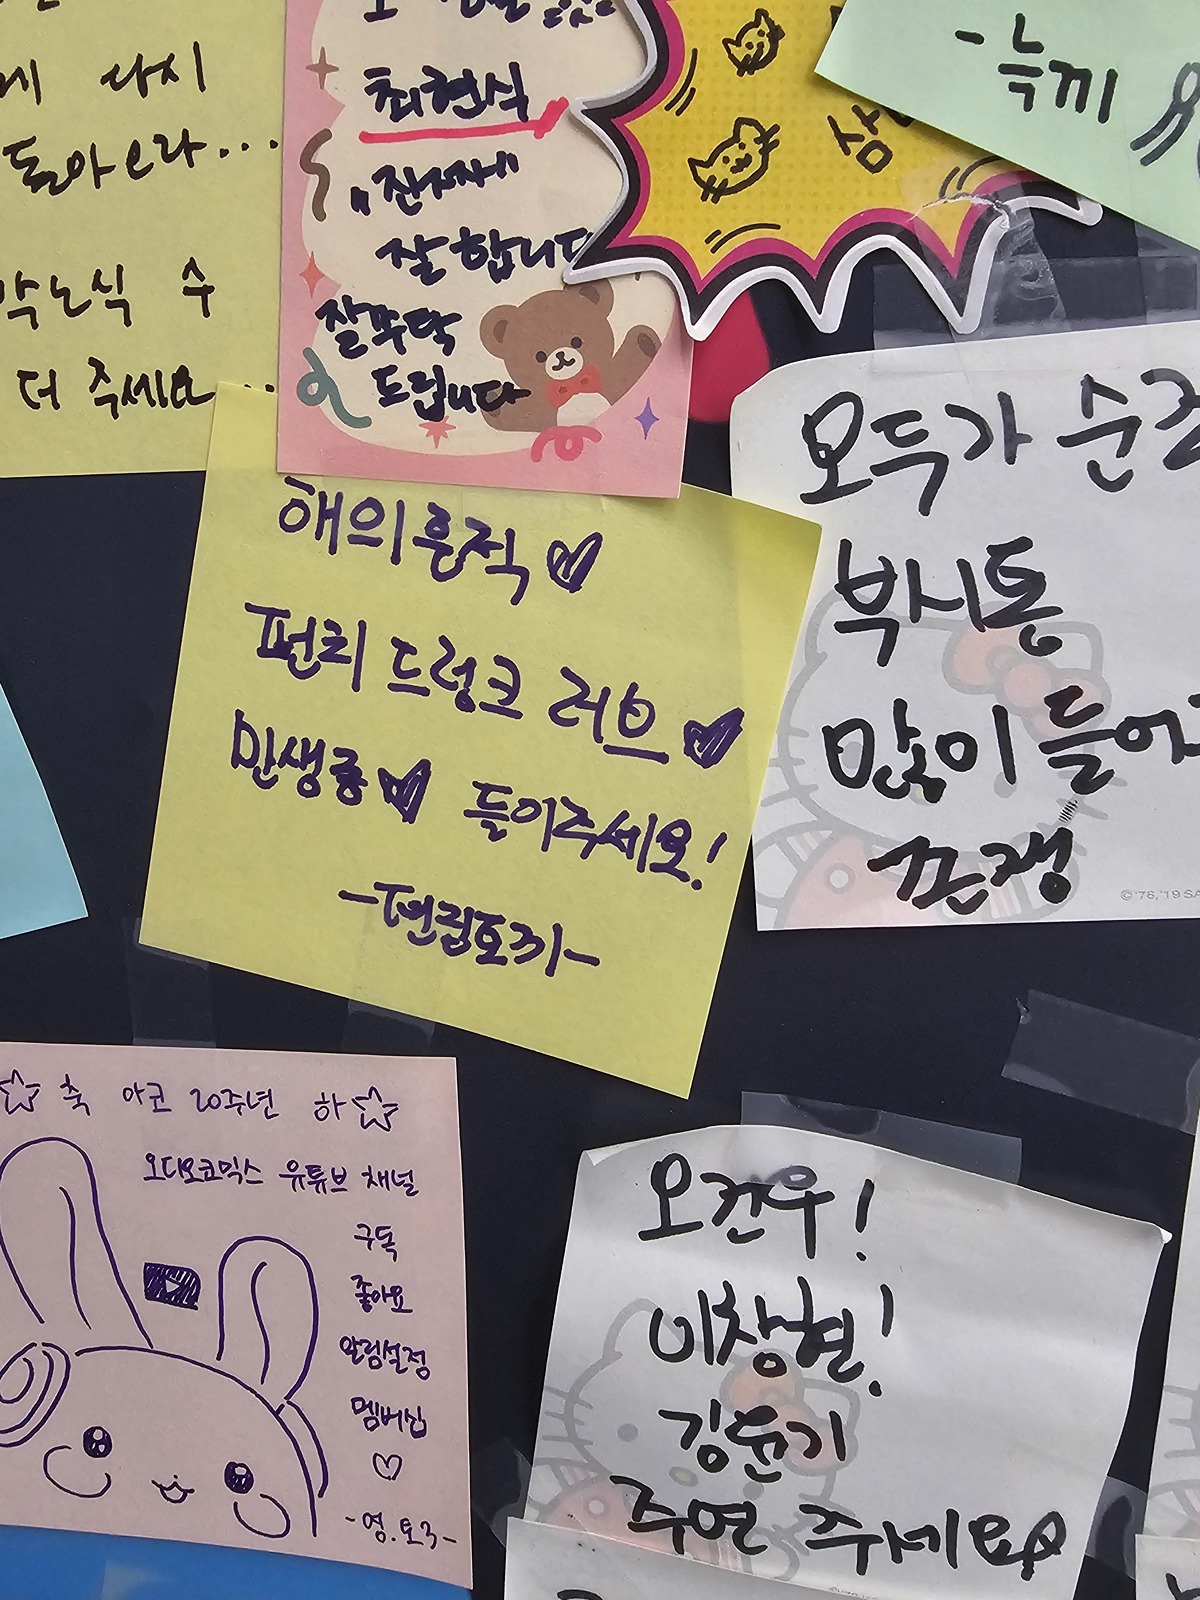 게 다시
돌아오라...
박노식 수
더 주세요...
최현식
"진짜"
잘 합니다
잘 부탁
드립니다
-늑끼
모두가 순
박시동
많이 들어
해의 흔적
펀치 드렁크 러브
인생곡 들어주세요!
축 아코 20주년 하
오디오코믹스 유튜브 채널
구독
좋아요
알림설정
멤버십
-영.토끼-
오건우!
이창현!
김윤기
주연 주세요
©'76,'19 SA